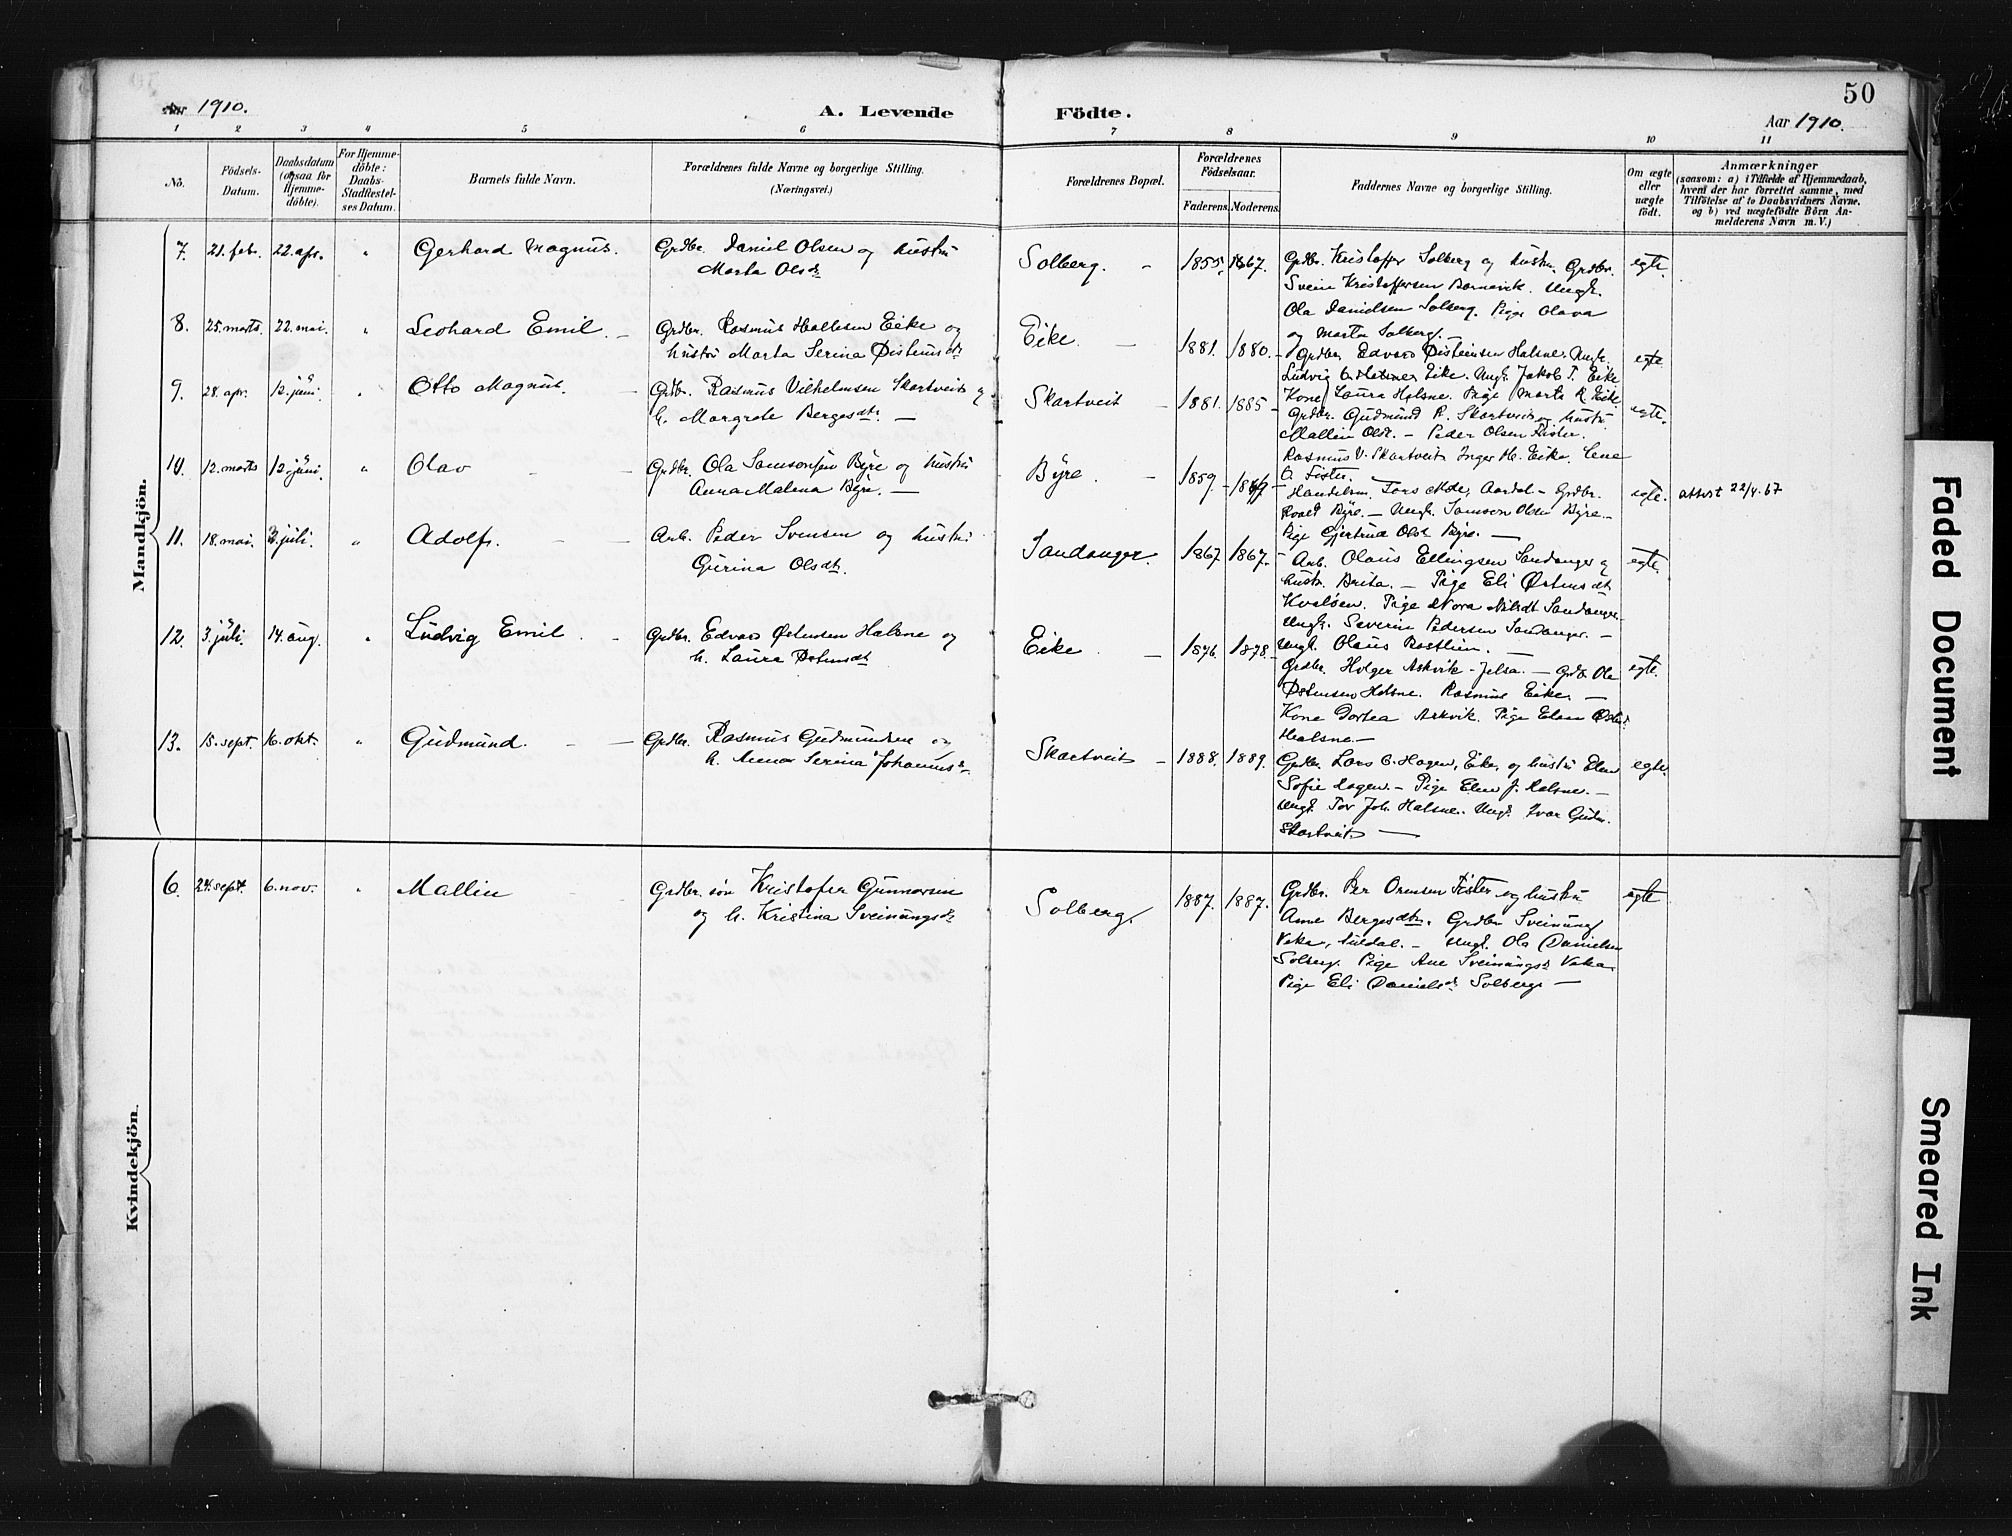 50
Aar 1910.
A. Levende
Födte.
Aar 1910.
1 2 3 4 5 6 7 8 9 10 11
No.
Födsels-Datum.
Daabsdatum (ogsaa for Hjemme-döbte).
For Hjemme-döbte: Daabs-Stadfæstel-ses Datum.
Barnets fulde Navn.
Forældrenes fulde Navne og borgerlige Stilling.
(Næringsvei.)
Forældrenes Bopæl.
Forældrenes Födselsaar.
Faderens. Moderens.
Faddernes Navne og borgerlige Stilling.
Om ægte eller uægte födt.
Anmærkninger
(saasom: a) i Tilfælde af Hjemmedaab,
hvem der har forrettet samme, med
Tilföielse af to Daabsvidners Navne.
og b) ved uægtefödte Börn An-
melderens Navn m. V.)
Mandkjön.
7. 21. febr. 22. apr. " Gerhard Magnus. Grdbr. Daniel Olsen og hustru
Marta Olsdr
Solberg. - 1855. 1867. egte.
Grdbr. Kristoffer Solberg og hustru. Grdbr.
Svein Kristoffersen Barnevik. Ungk.
Ola Danielsen Solberg. Pige Olava
og Marta Solberg. -
8. 25. marts. 22. mai. " Leohard Emil. - Grdbr. Rasmus Hallesen Eike og
hustru Marta Serina Østensdt
Eike. - 1881. 1880. - egte
Grdbr. Edvard Østensen Halsne. Ungk.
Ludvig Eike. Ungk. Jakob T. Eike
Kone Laura Halsne. Pige Marta R. Eike
9. 28. apr. 12. juni. " Otto Magnus. Grdbr. Rasmus Vilhelmsen Skartveit og
h. Margrete Bergesdtr. -
Skartveit - 1881. 1885 - egte.
Grdbr. Gudmund R. Skartveit og hustru
Mallin Olsdt. - Peder Olsen Fister.
Rasmus V. Skartveit Inger M. Eike. Lene
O. Fister.
10. 12. marts 12. juni. " Olav - - Grdbr. Ola Samsonsen Byre og hustru
Anna Malena Byre. -
Byre. - 1859. egte. attest 22/4. 67
Handelsm. Tors Moe, Aardal - Grdbr.
Roald Byre. - Ungk. Samson Olsen Byre. -
Pige Gjertrud Olsdt Byre. -
11. 18. mai. 3. juli. " Adolf. - - Arb. Peder Svensen og hustru
Gurina Olsdtr.
Sandanger. 1867. 1867. - egte.
Arb. Olaus Ellingsen Sandanger og
hustr. Brita. - Pige Eli Østensdt
Kvaløen. Pige Nora Nilsdt Sandanger.
Ungk. Severin Pedersen Sandanger. -
Ungk. Olaus Rostlien. -
12. 3. juli. 14. aug. " Ludvig Emil. - Grdbr. Edvard Østensen Halsne og
h. Laura Østensdt
Eike. - 1876. 1878. - egte.
Grdbr. Holger Askvik - Jelsa. - Grdb. Ola
Østensen Halsne. Rasmus Eike. -
Kone Dortea Askvik. Pige Elen
Halsne. -
13. 15. sept. 16. okt. " Gudmund. - - Grdbr. Rasmus Gudmundsen og
h. Anna Serina Johannesdr
Skartveit - 1888. 1889. egte.
Grdbr. Lars O. Hagen, Eike, og hustru Elen
Sofie Hagen. - Pige Elen J. Halsne. -
Ungk. Tor Joh. Halsne. Ungk. Ivar Gudm.
Skartveit. -
Kvindekjön.
6. 24. sept. 6. nov. " Mallin - Grdbr. søn Kristofer Gunnarsen
og h. Kristina Sveinungsdr
Solberg. 1887. 1887. egte
Grdbr. Per Ormsen Fister og hustru
Anne Bergesdtr. Grdbr Sveinung
Veka, Suldal. - Ungk. Ola Danielsen
Solberg. Pige Ane Sveinungsdr Veka.
Pige Eli Danielsdt Solberg -
Faded Document
Smeared Ink